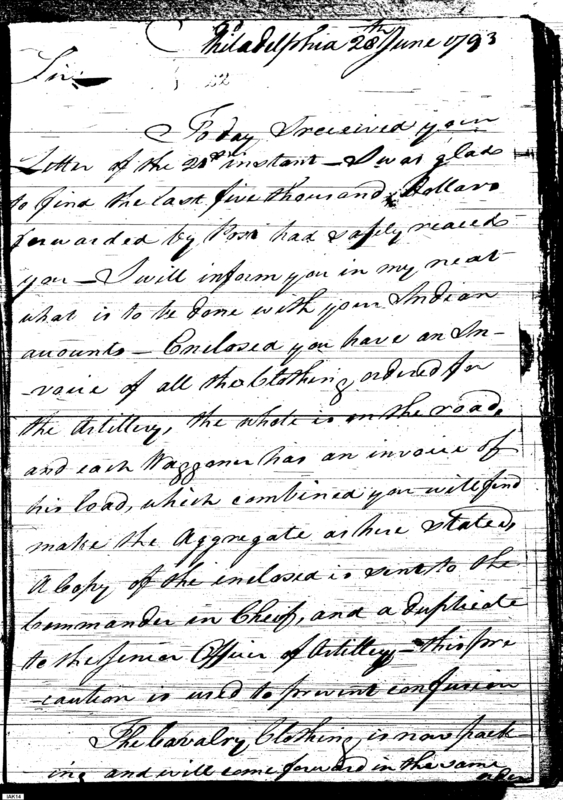 Philadelphia 28th June 1793
Sir
To day I received your
Letter of the 21st instant – I was glad
to find the last five thousand Dollars
forwarded by Post had safely reaced
you – I will inform you in my next
what is to be done with your Indian
accounts – Enclosed you have an In-
-voice of all the Clothing ordered for
the Artillery, the whole is on the road,
and each Waggoner has an invoice of
his load, which combined you will find
make the Aggregate as here stated,
A Copy of the enclosed is sent to the
Commander in Cheif, and a duplicate
to the Senior Officer of Artillery – this pre
-caution is used to prevent confusion
The Cavalry Clothing is now pack-
ing and will come forward in the same
order
IAK14